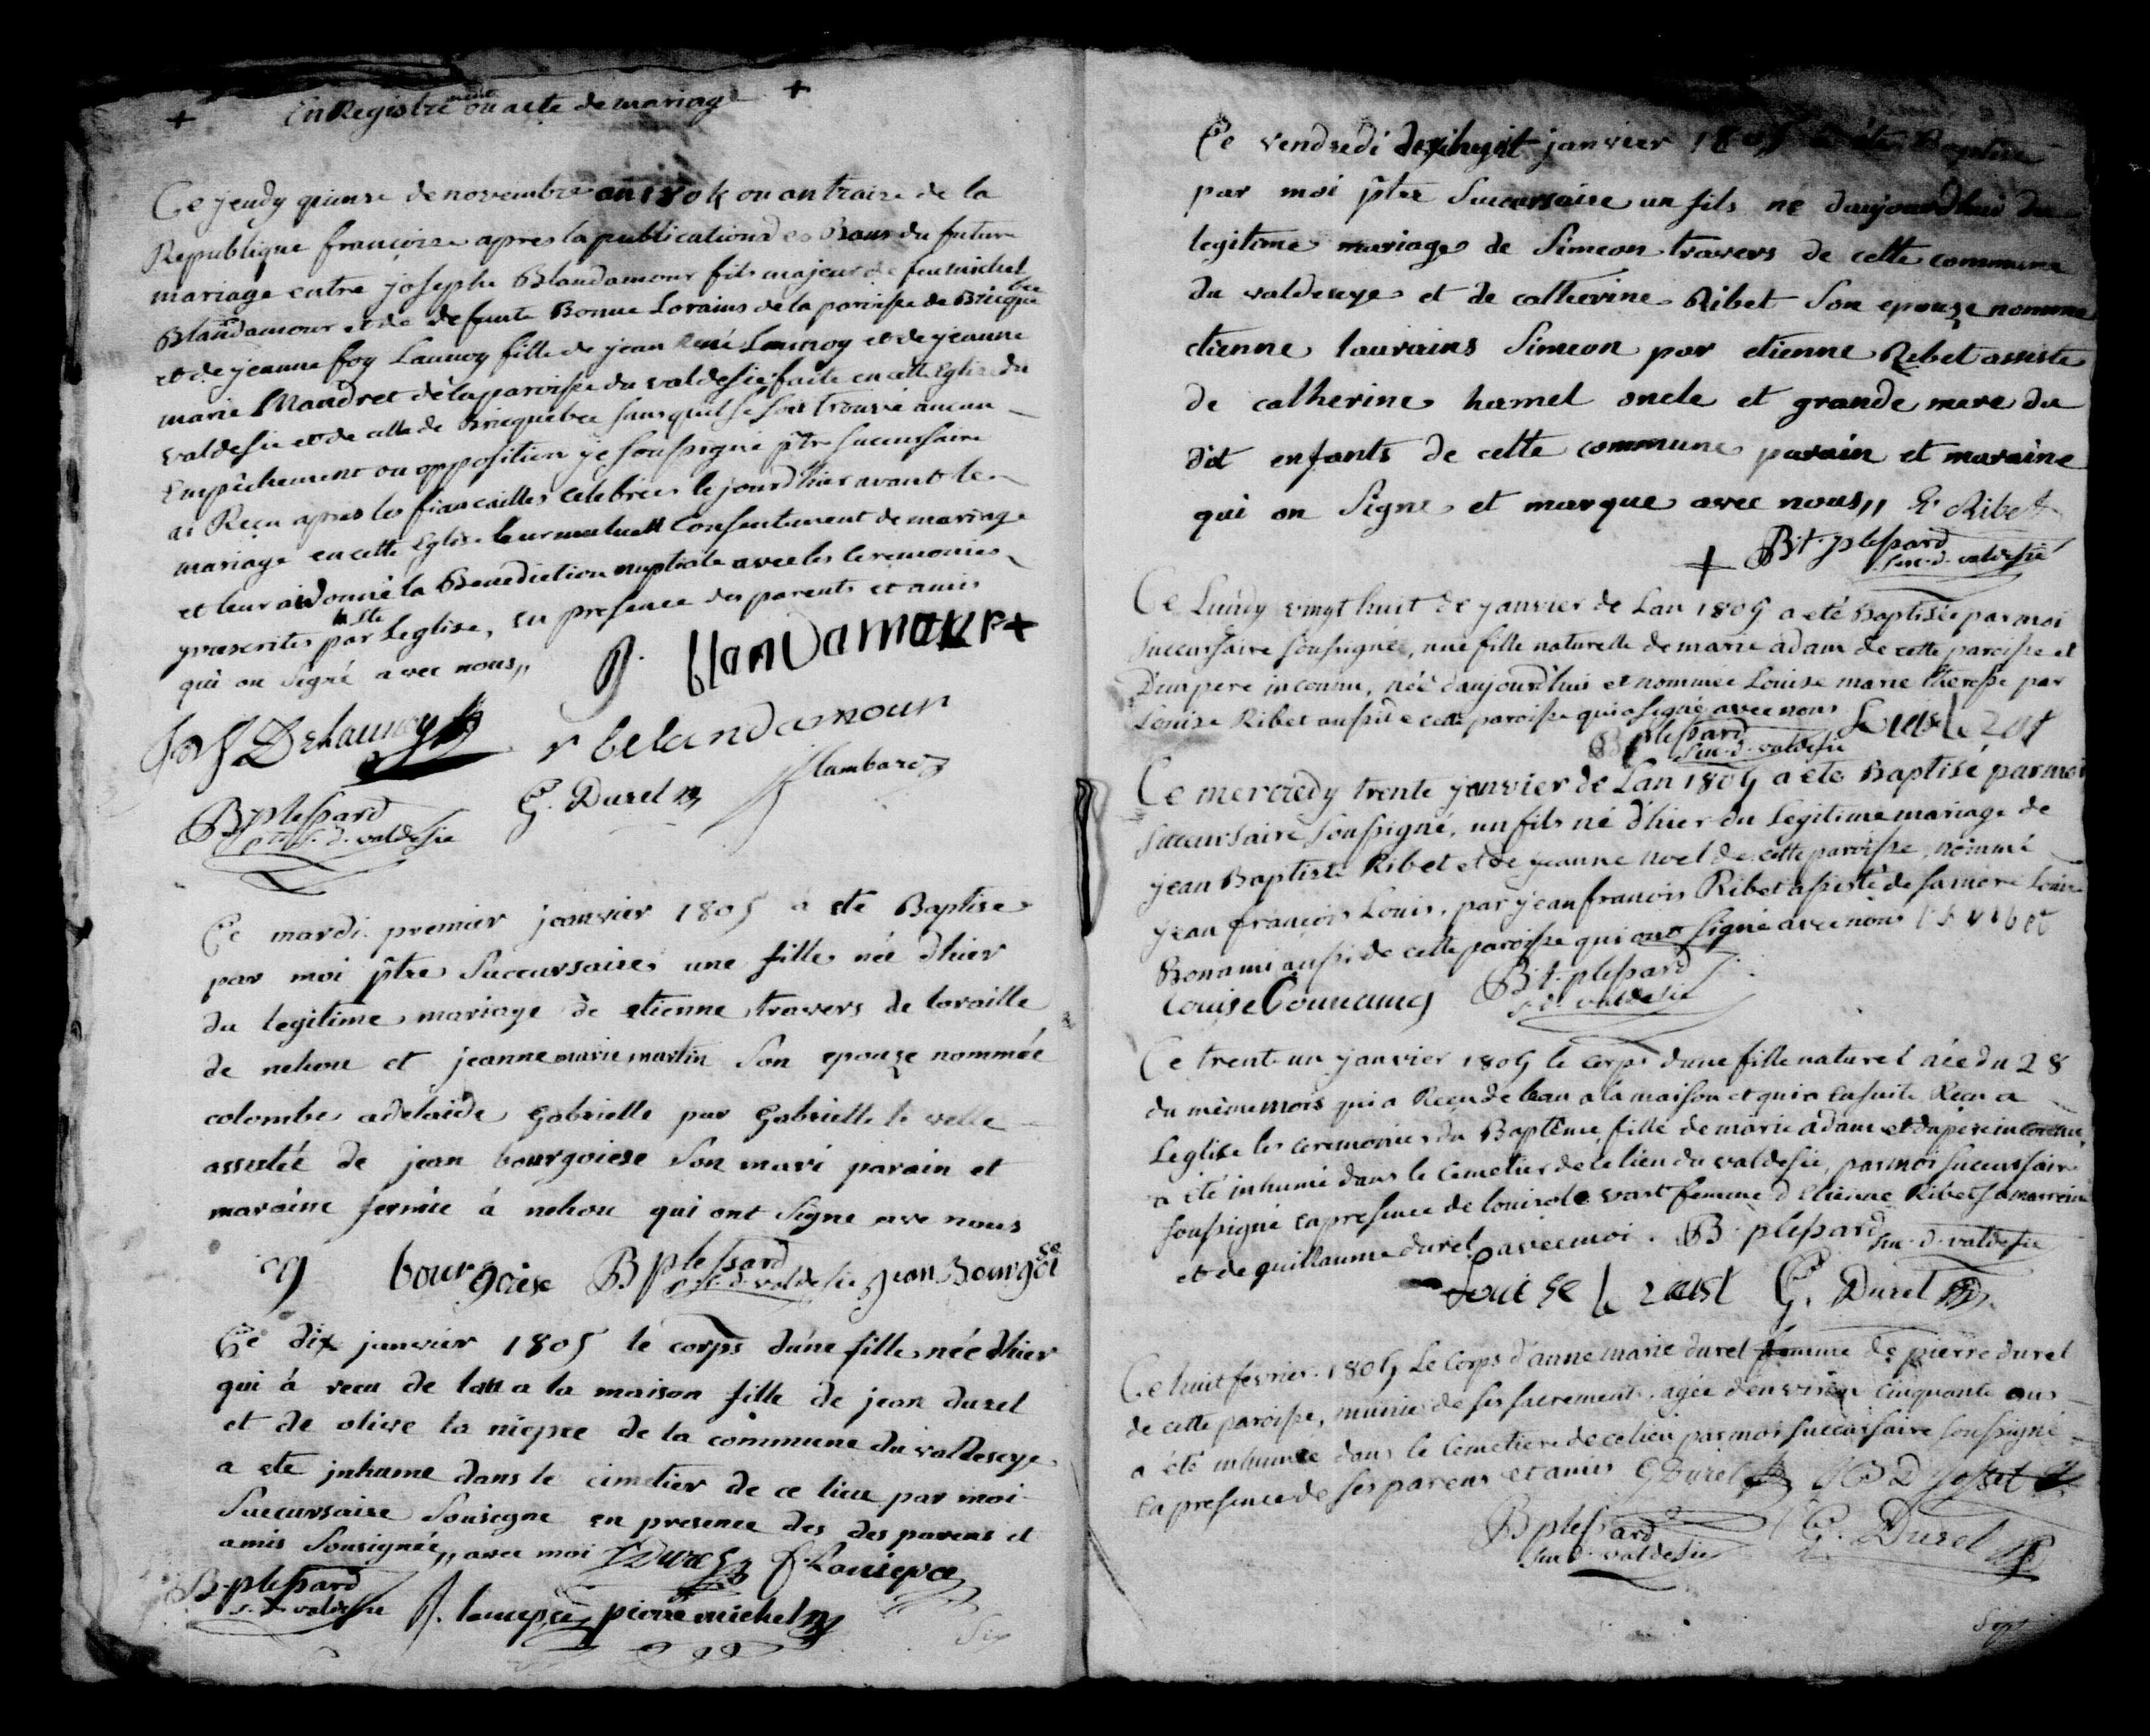 + EnRegistre ou acte de mariage +
Ce jeudy quinze de novembre an 1804 ou an traize de la
Republique françoise apres la publication des Bans du futur
mariage entre joseph Blandamour fils majeur de feu michel
Blandamour et de defunte Bonne Lorains de la paroisse de Bricquebec
et de jeanne foy Launoy fille de jean René Launoy et de jeanne
marie Maudret de la paroisse du valdesie faite en cette Eglise du
valdesie et de celle de Bricquebec sans quil se soit trouvé aucun
Empêchement ou opposition je soussigné ptre succursaire
ai Reçu apres les fiancailles celebrées le jourdhier avant le
mariage en cette Eglise leur mutuell Consentement de mariage
et leur ai donné la Benediction nuptiale avec les ceremonies
prescrites par la Ste Leglise, en presence des parents et amis
qui on signé avec nous,,
J. blandamour +
Delaunoy
r belandamour
B plessard
ptr s. d. valdesie
G. Durel
lambard
Ce mardi premier janvier 1805 a ete Baptise
par moi ptre Succursaire une fille née dhier
du legitime mariage de etienne travers de lavaille
de nehou et jeanne marie martin Son epouze nommée
colombe adelaide Gabrielle par Gabrielle le velle
assistée de jean bourgoiese Son mari parain et
maraine fermie à nehou qui ont Signe ave nous
bourgoise B plessard
p s. d. valdesie jean Bourgoise
Ce dix janvier 1805 le corps dune fille née dhier
qui à recu de leau a la maison fille de jean durel
et de olive la niepce de la commune du valdeseye
a ete jnhume dans le cimetier de ce lieu par moi
Succursaire Sousigne en presence des des parens et
amis Sousignée,, avec moi J Durel
B. plessard
s. d. valdesie
J. laniepce pierre michel
Six
Ce vendredi dixhuit janvier 1805 a ete Baptise
par moi ptre Succursaire un fils né daujourdhui du
legitime mariage de Simeon travers de cette commune
du valdeseye et de catherine Ribet Son epouze nomme
etienne laurains Simeon par etienne Ribet assiste
de catherine hamel oncle et grande mere du
dit enfants de cette commune parain et maraine
qui on Signe et marque avec nous,, E. Ribet
+ B.t. plessard
suc. d. valdesie
Ce Lundy vingt huit de janvier de Lan 1805 a eté Baptisée par moi
succursaire soussigné, une fille naturelle de marie adam de cette paroisse et
D'un pere inconnu, née daujourdhui et nommée Louise marie therese par
Louise Ribet aussi de cette paroisse qui a signé avec nous
B plessard
suc. d. valdesie
Ce mercredy trente janvier de Lan 1805 a ete Baptisé par moi
succursaire soussigné, un fils né d'hier du Legitime mariage de
jean Baptiste Ribet et de jeanne noel de cette paroisse, nommé
jean françois Louis, par jean francois Ribet assisté de sa mere Louise
Bonami aussi de cette paroisse qui ont signé avec nous
Louise Bonnamy
B.t. plessard
s. d. valdesie
Ce trente un janvier 1805 le corps dune fille naturel née du 28
du même mois qui a Reçu de leau a la maison et qui a Ensuite Reçu a
Leglise les ceremonies du Baptême, fille de marie adam et du pere inconnu,
a été inhumé dans le Cemetier de ce lieu du valdesie, par moi succursaire
soussigné En presence de louise le vast femme d'Etienne Ribet sa marreine
et de guillaume durel avec moi. B. plessard
suc. d. valdesie
Louise le vast G. Durel
Ce huit fevrier 1805 Le Corps d'anne marie durel femme de pierre durel
de cette paroisse, munie de ses sacrements, agée d'environ Cinquante ans
a été inhumée dans le Cemetiere de ce lieu par moi succursaire soussigné
En presence de ses parens et amis G Durel
B plessard
suc. d. valdesie
G. Durel
Sept